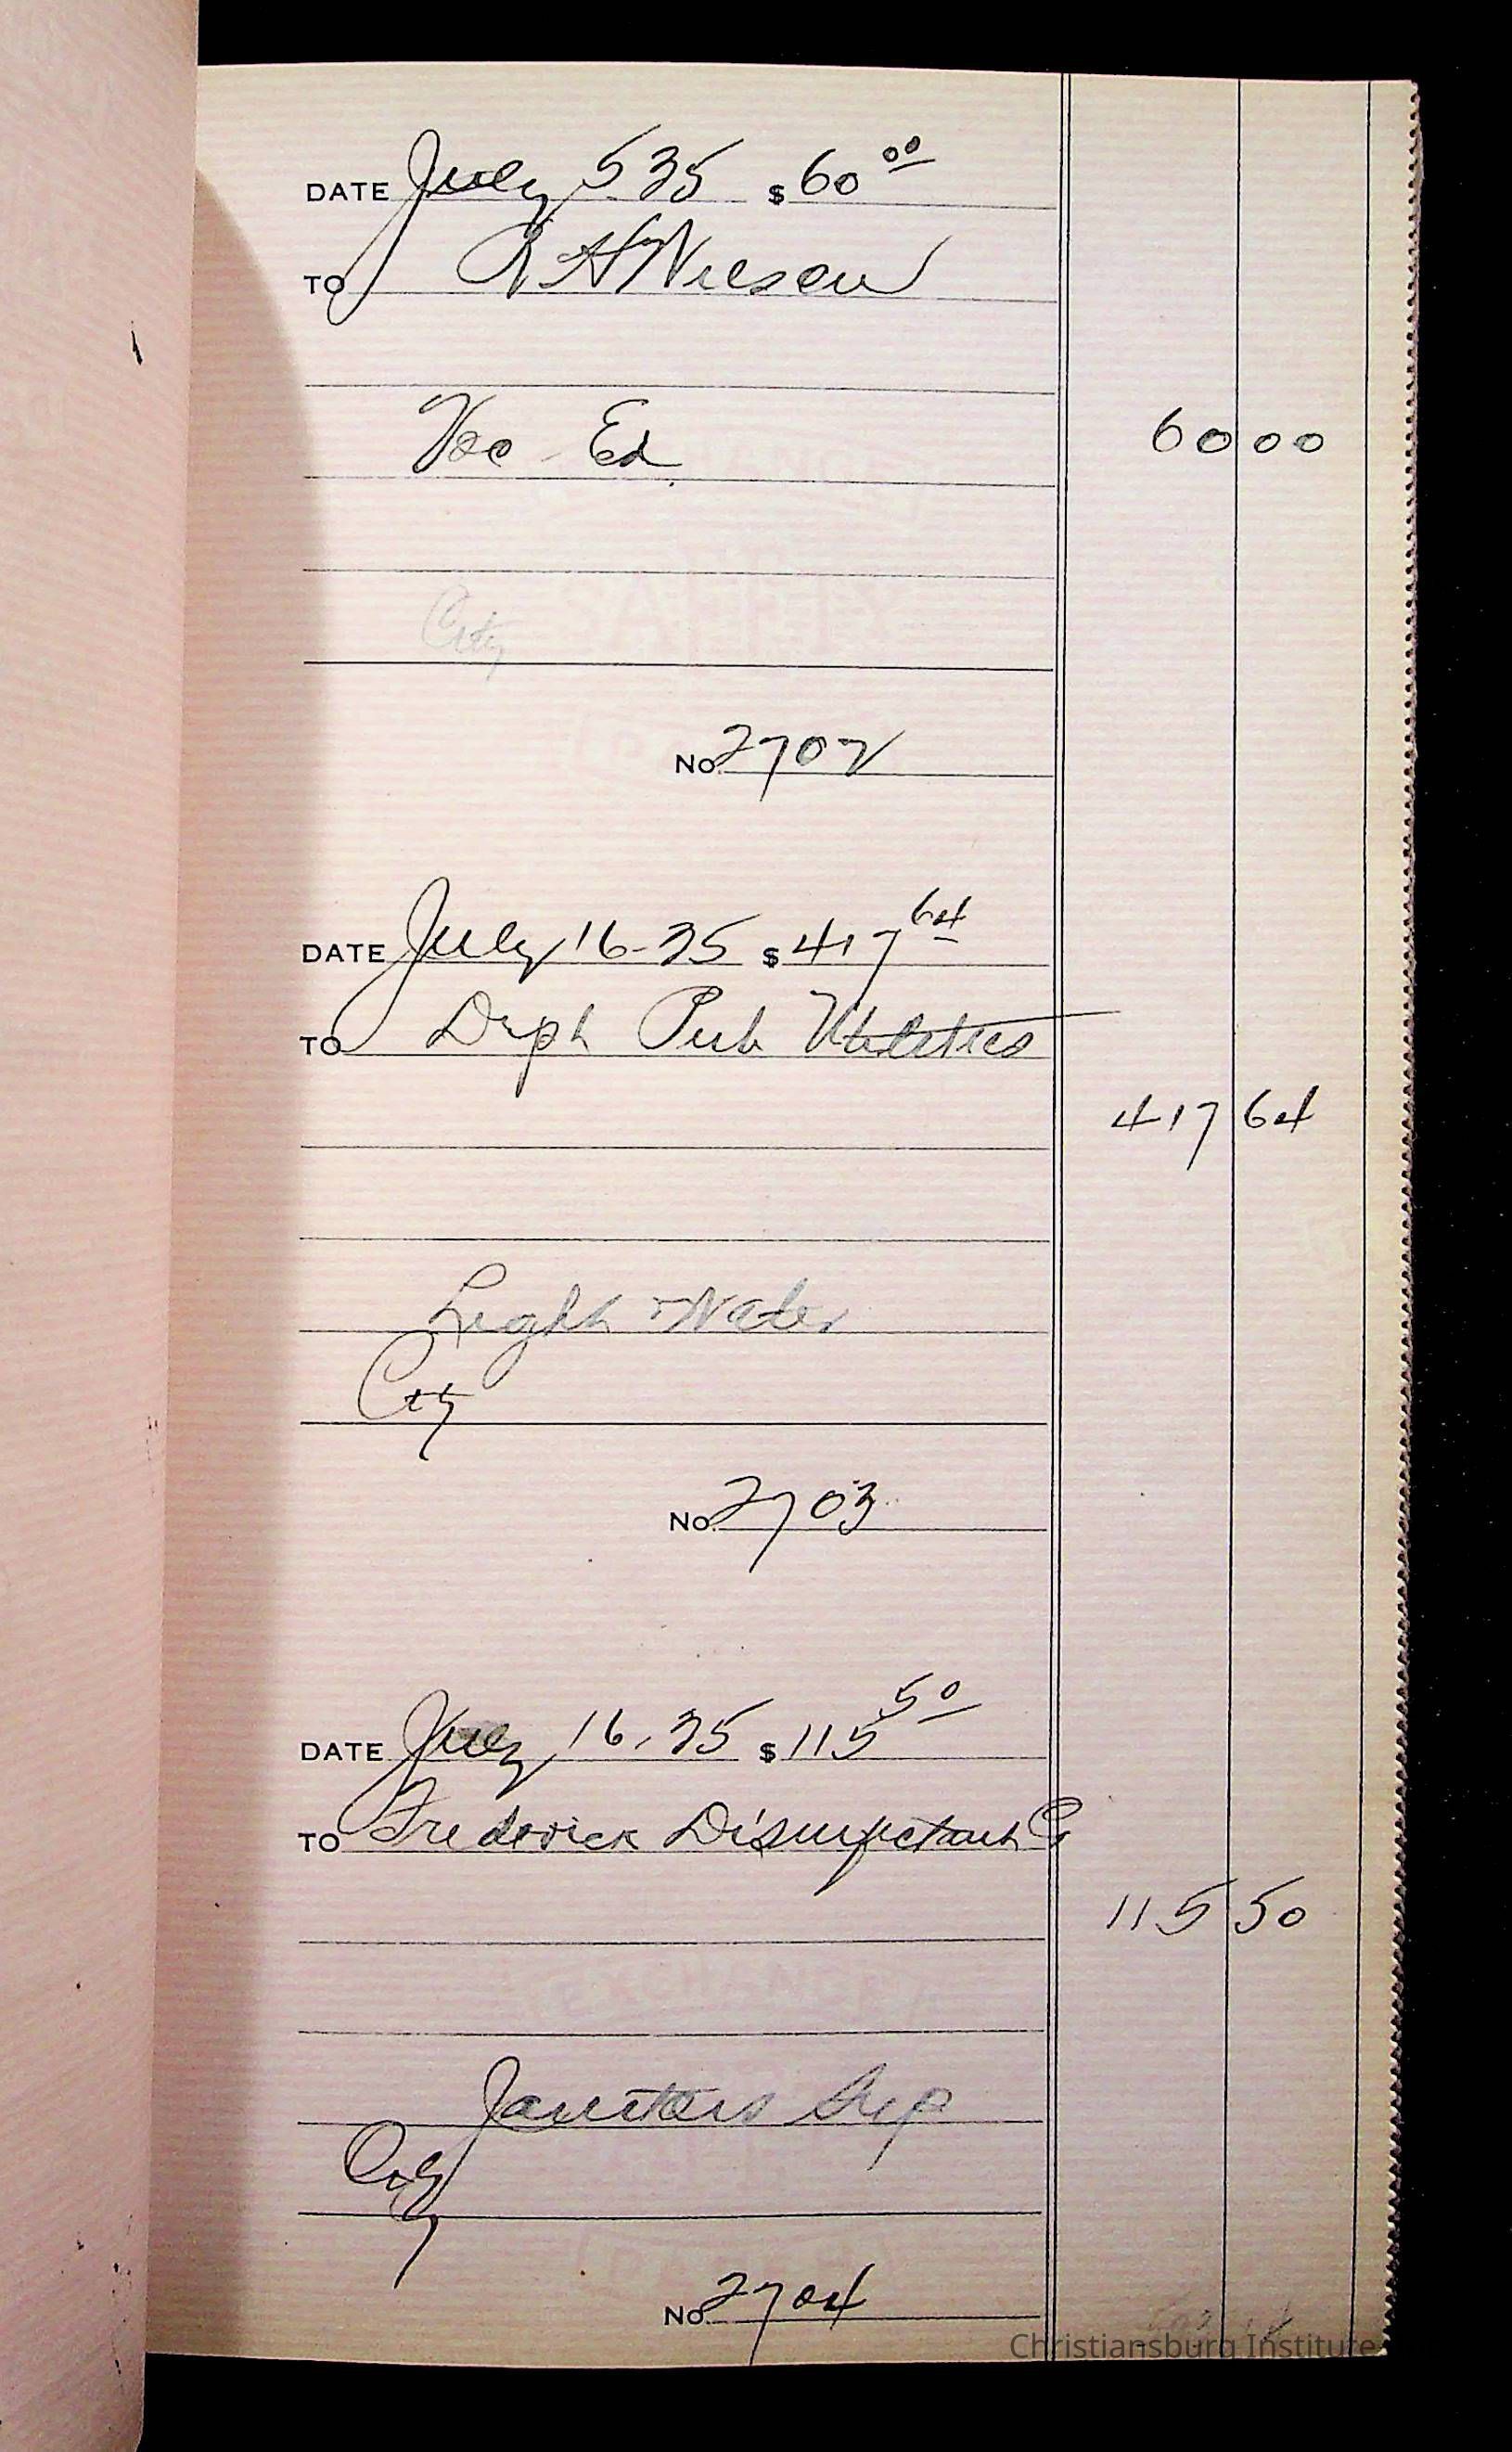 DATE July 5 35 $ 60 00
TO A H Wilson
Voc Ed. 60 00
City
No. 2702
DATE July 16-35 $ 417 64
TO Dept Pub Utilities
417 64
Light + Water
City
No. 2703
DATE July 16, 35 $ 115 50
TO Frederick Disinfectant Co
115 50
Janitors Sup
City
No. 2704
Christiansburg Institute